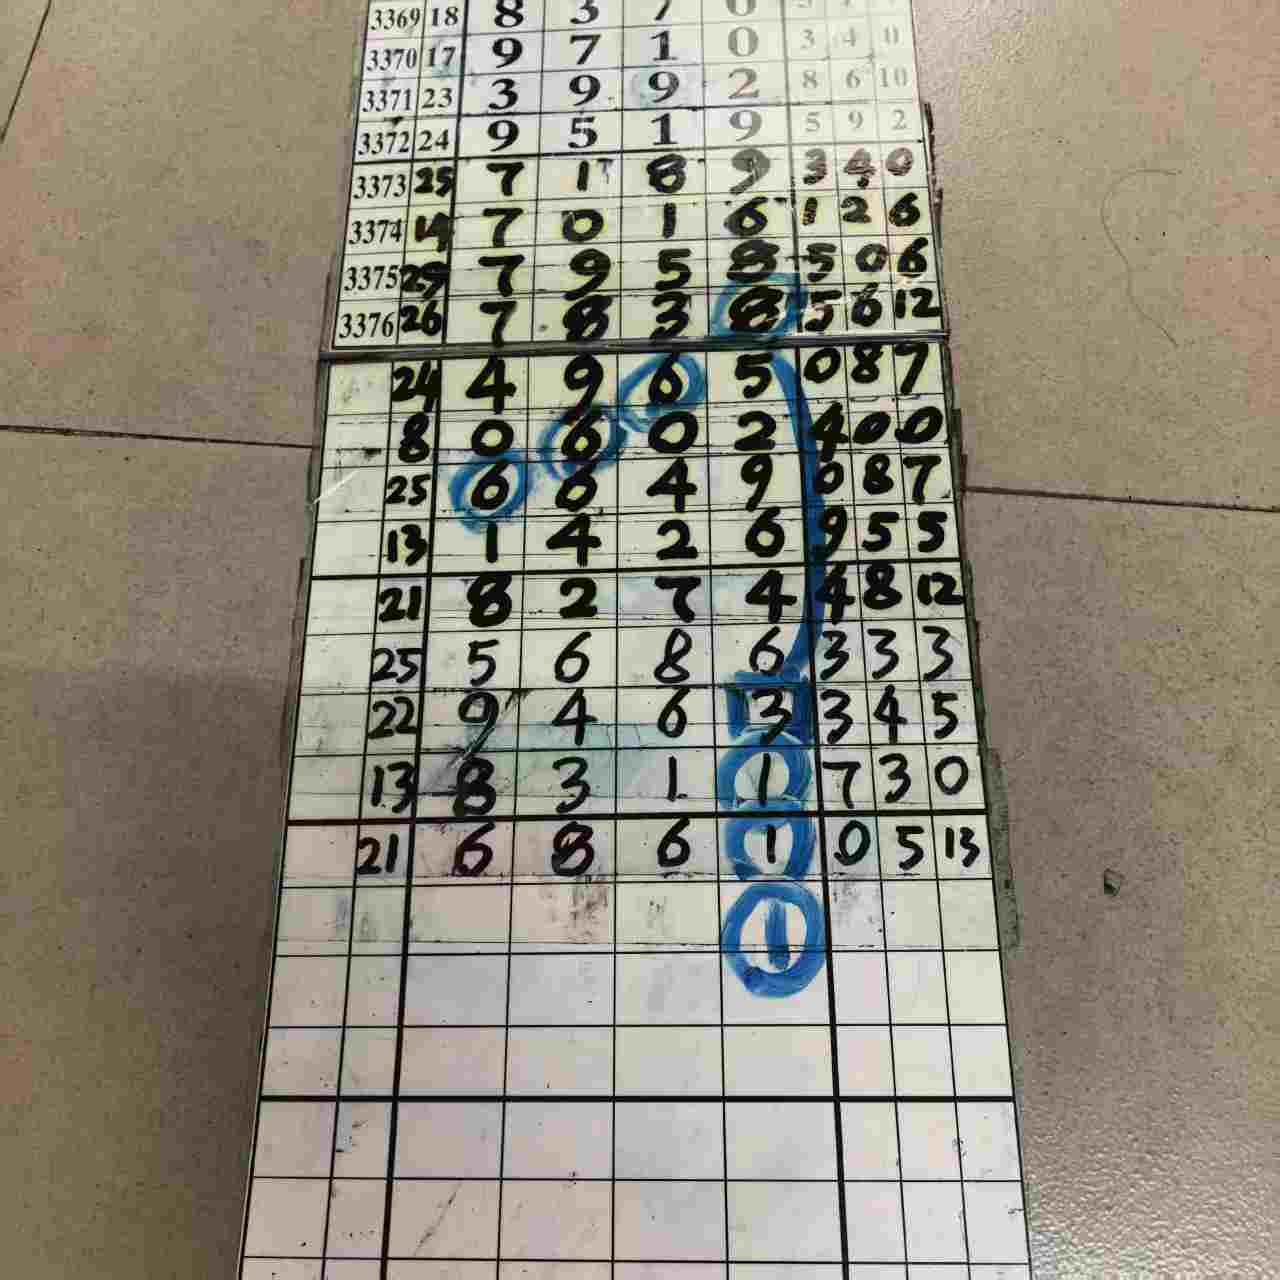 3369 18 8 3 7 0
3370 17 9 7 1 0 3 4 0
3371 23 3 9 9 2 8 6 10
3372 24 9 5 1 9 5 9 2
3373 25 7 1 8 9 3 4 0
3374 14 7 0 1 6 1 2 6
3375 29 7 9 5 8 5 0 6
3376 26 7 8 3 8 5 6 12
24 4 9 6 5 0 8 7
8 0 6 0 2 4 0 0
25 6 6 4 9 0 8 7
13 1 4 2 6 9 5 5
21 8 2 7 4 4 8 12
25 5 6 8 6 3 3 3
22 9 4 6 3 3 4 5
13 8 3 1 1 7 3 0
21 6 8 6 1 0 5 13
1